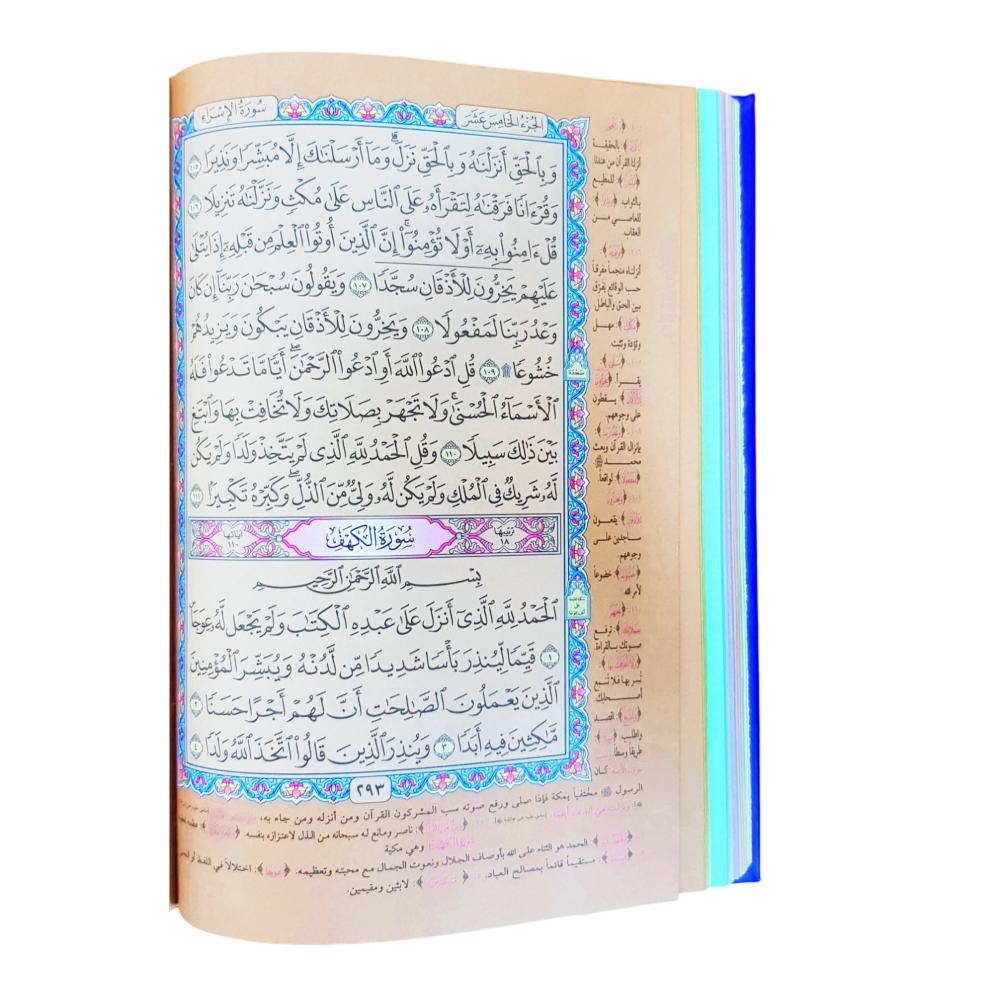 الجزء الخامس عشر
سورة الإسراء
وَبِٱلْحَقِّ أَنزَلْنَٰهُ وَبِٱلْحَقِّ نَزَلَ ۗ وَمَآ أَرْسَلْنَٰكَ إِلَّا مُبَشِّرًا وَنَذِيرًا ١٠٥
وَقُرْءَانًا فَرَقْنَٰهُ لِتَقْرَأَهُۥ عَلَى ٱلنَّاسِ عَلَىٰ مُكْثٍ وَنَزَّلْنَٰهُ تَنزِيلًا ١٠٦
قُلْ ءَامِنُوا۟ بِهِۦٓ أَوْ لَا تُؤْمِنُوٓا۟ ۚ إِنَّ ٱلَّذِينَ أُوتُوا۟ ٱلْعِلْمَ مِن قَبْلِهِۦٓ إِذَا يُتْلَىٰ
عَلَيْهِمْ يَخِرُّونَ لِلْأَذْقَانِ سُجَّدًا ١٠٧ وَيَقُولُونَ سُبْحَٰنَ رَبِّنَآ إِن كَانَ
وَعْدُ رَبِّنَا لَمَفْعُولًا ١٠٨ وَيَخِرُّونَ لِلْأَذْقَانِ يَبْكُونَ وَيَزِيدُهُمْ
خُشُوعًا ۩ ١٠٩ قُلِ ٱدْعُوا۟ ٱللَّهَ أَوِ ٱدْعُوا۟ ٱلرَّحْمَٰنَ ۖ أَيًّا مَّا تَدْعُوا۟ فَلَهُ
ٱلْأَسْمَآءُ ٱلْحُسْنَىٰ ۚ وَلَا تَجْهَرْ بِصَلَاتِكَ وَلَا تُخَافِتْ بِهَا وَٱبْتَغِ
بَيْنَ ذَٰلِكَ سَبِيلًا ١١٠ وَقُلِ ٱلْحَمْدُ لِلَّهِ ٱلَّذِى لَمْ يَتَّخِذْ وَلَدًا وَلَمْ يَكُن
لَّهُۥ شَرِيكٌ فِى ٱلْمُلْكِ وَلَمْ يَكُن لَّهُۥ وَلِىٌّ مِّنَ ٱلذُّلِّ ۖ وَكَبِّرْهُ تَكْبِيرًۢا ١١١
ترتيبها ١٨
سورة الكهف
آياتها ١١٠
بِسْمِ ٱللَّهِ ٱلرَّحْمَٰنِ ٱلرَّحِيمِ
ٱلْحَمْدُ لِلَّهِ ٱلَّذِىٓ أَنزَلَ عَلَىٰ عَبْدِهِ ٱلْكِتَٰبَ وَلَمْ يَجْعَل لَّهُۥ عِوَجَا ۜ
١ قَيِّمًا لِّيُنذِرَ بَأْسًا شَدِيدًا مِّن لَّدُنْهُ وَيُبَشِّرَ ٱلْمُؤْمِنِينَ
ٱلَّذِينَ يَعْمَلُونَ ٱلصَّٰلِحَٰتِ أَنَّ لَهُمْ أَجْرًا حَسَنًا ٢
مَّٰكِثِينَ فِيهِ أَبَدًا ٣ وَيُنذِرَ ٱلَّذِينَ قَالُوا۟ ٱتَّخَذَ ٱللَّهُ وَلَدًا ٤
٢٩٣
سجدة
بالحقيقة
أنزلنا القرآن من عندنا.
للمطيع
بالثواب
للعاصي من
العقاب.
أنزلناه منجماً مفرقاً
حسب الوقائع يفرق
بين الحق والباطل.
مهل
وتؤدة وتثبت.
يقرأ
يسقطون
على وجوههم.
بإنزال القرآن وبعث
محمد ﷺ
لواقعاً.
يقعون
ساجدين على
وجوههم.
خضوعاً
لأمر الله
ترفع
صوتك بالقراءة.
تسر بها فلا تسمع
أصحابك.
اقصد
واطلب
طريقاً وسطاً
كان
الرسول ﷺ مختفياً بمكة فإذا صلى ورفع صوته سب المشركون القرآن ومن أنزله ومن جاء به،
ناصر ومانع له سبحانه من الذل لاعتزازه بنفسه.
وهي مكية
الحمد هو الثناء على الله بأوصاف الجلال ونعوت الجمال مع محبته وتعظيمه. عوجا: اختلالاً في اللفظ أو
مستقيماً قائماً بمصالح العباد. لابثين ومقيمين.